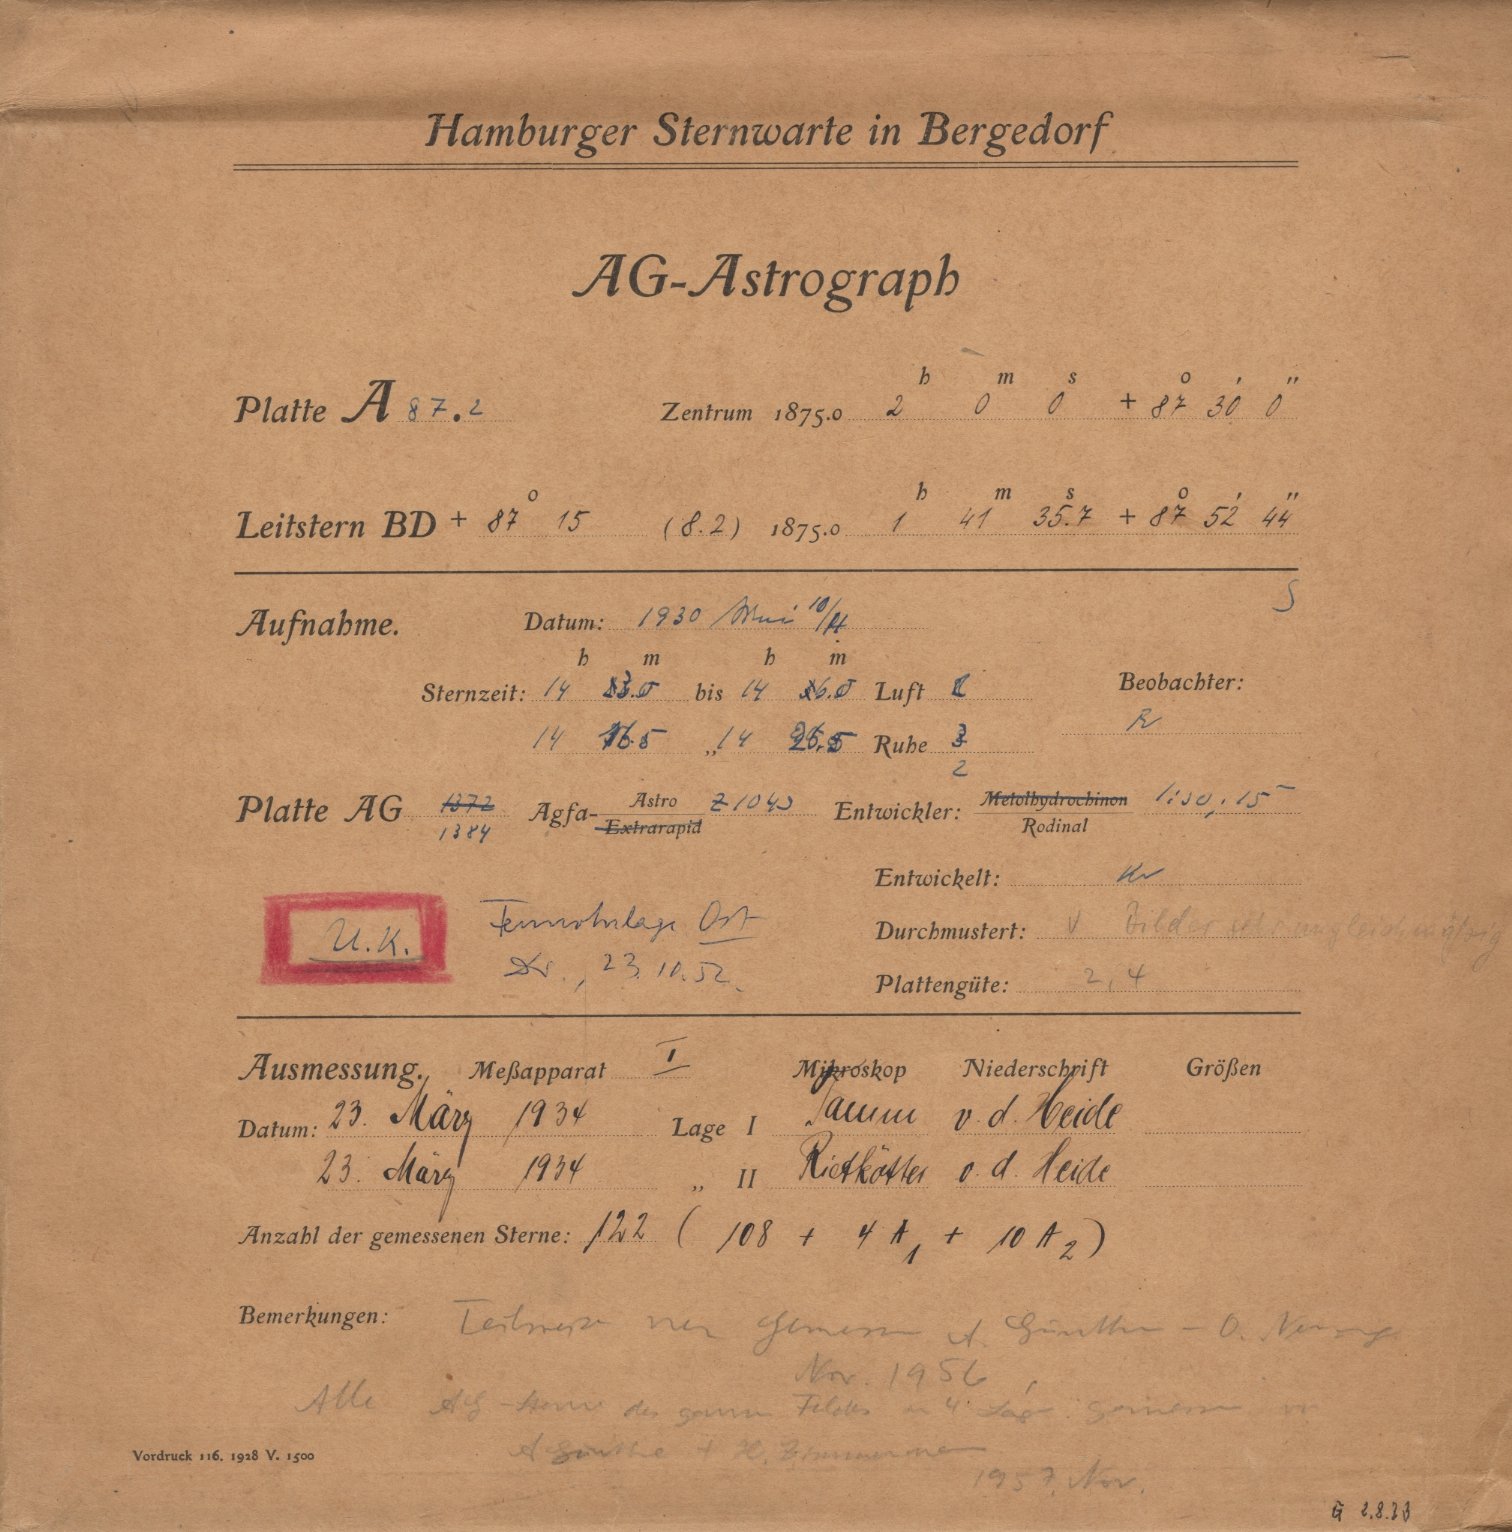 Hamburger Sternwarte in Bergedorf
AG-Astrograph
h m s o ' "
Platte A 87.2 Zentrum 1875.0 2 0 0 + 87 30 0
o h m s o ' "
Leitstern BD + 87 15 (8.2) 1875.0 1 41 35.7 + 87 52 44
S
Aufnahme. Datum: 1930 Mai 10/11
h m h m
Sternzeit: 14 13.0 bis 14 16.0 Luft Beobachter:
14 16.5 „ 14 26.5 Ruhe R
2
Platte AG 1372 Agfa- Astro Z1043 Entwickler: Metolhydrochinon 1:30, 15
1384 Extrarapid Rodinal
Entwickelt: Kr
U.K. Fernrohrlage Ost Durchmustert: V Bilder sehr ungleichmäßig
Dr., 23.10.52. Plattengüte: 2,4
Ausmessung. Meßapparat I Mikroskop Niederschrift Größen
Datum: 23. März 1934 Lage I Tamm v. d. Heide
23. März 1934 „ II Rietkötter v. d. Heide
Anzahl der gemessenen Sterne: 122 ( 108 + 4 A1 + 10 A2 )
Bemerkungen: Teilweise neu gemessen A. Günther - O.
Nov. 1956
Alle AG-Sterne des ganzen Feldes in 4 Lagen gemessen von
A Günther + H. Zimmermann
Vordruck 116. 1928 V. 1500
1957, Nov.
G 2.8.23